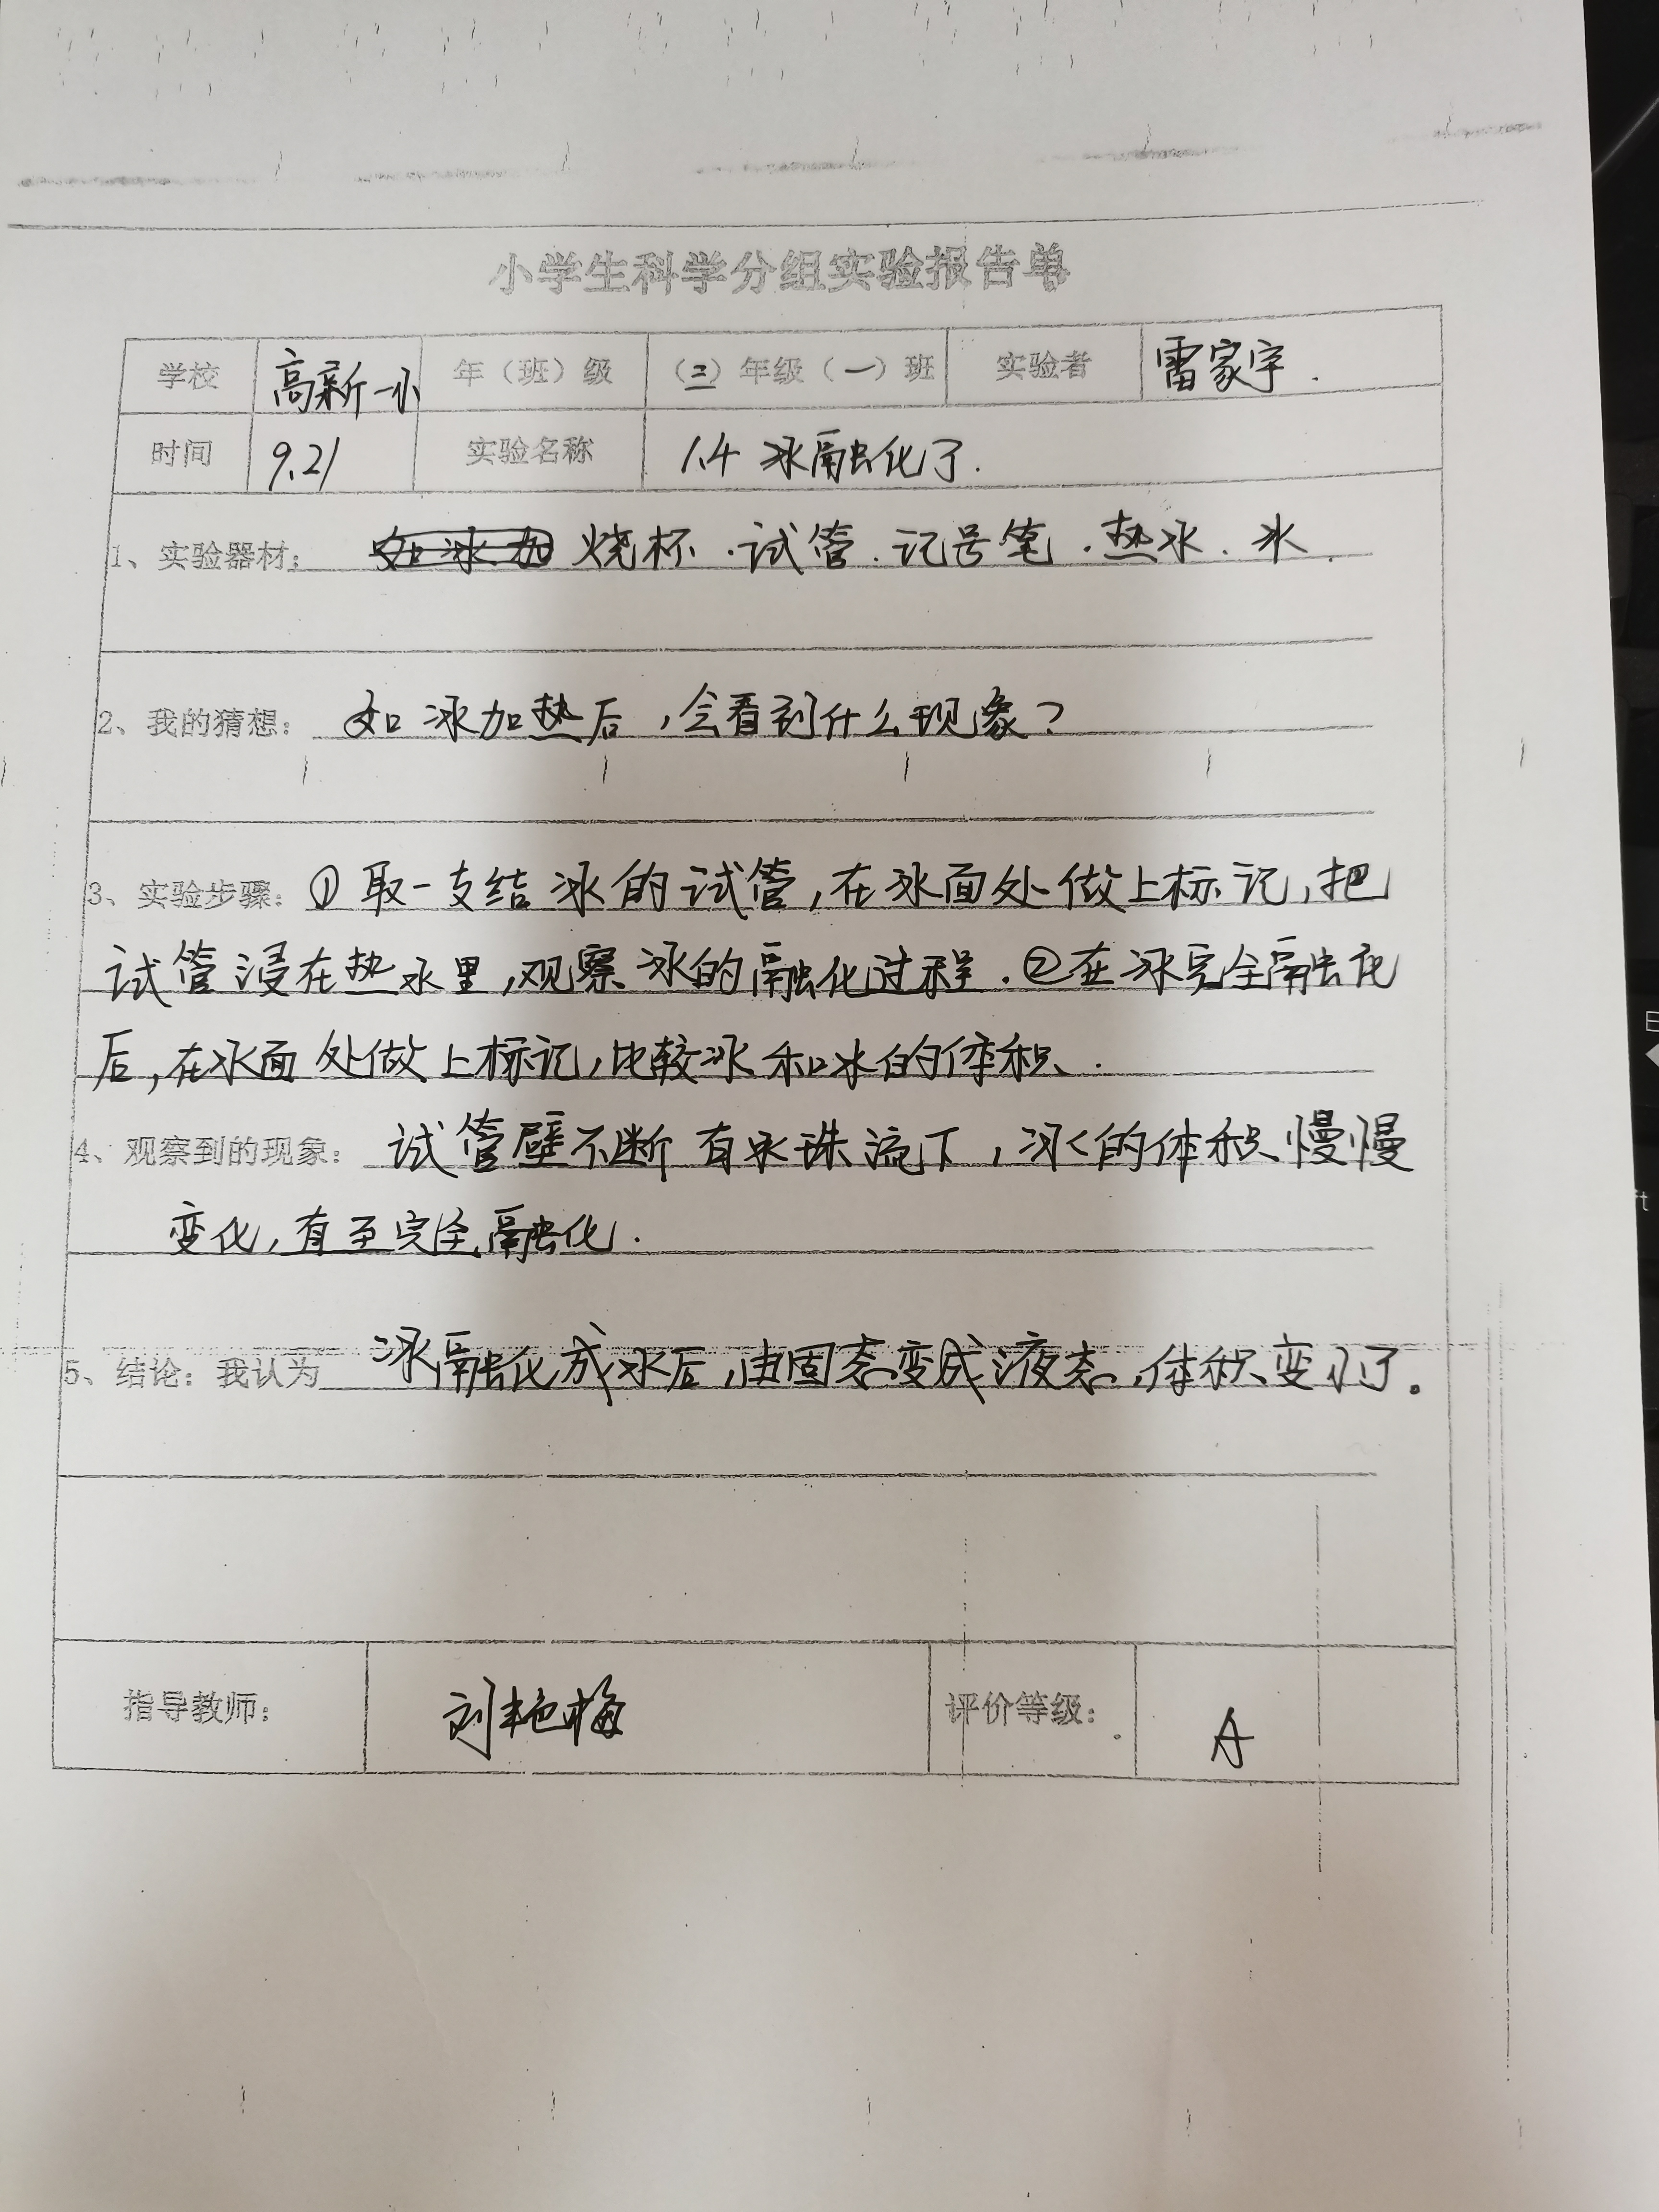 小学生科学分组实验报告单
学校 高新一小 年（班）级 （三）年级（一）班 实验者 雷家宇.
时间 9.21 实验名称 1.4 冰融化了.
1、实验器材： 烧杯.试管.记号笔.热水.水.
2、我的猜想： 如冰加热后,会看到什么现象?
3、实验步骤：①取一支结冰的试管,在冰面处做上标记,把
试管浸在热水里,观察冰的融化过程.②在冰完全融化
后,在水面处做上标记,比较冰和水的体积.
4、观察到的现象： 试管壁不断有水珠流下,冰的体积慢慢
变化,有至完全融化.
5、结论：我认为 冰融化成水后,由固态变成液态,体积变小了。
指导教师： 刘艳梅 评价等级： A